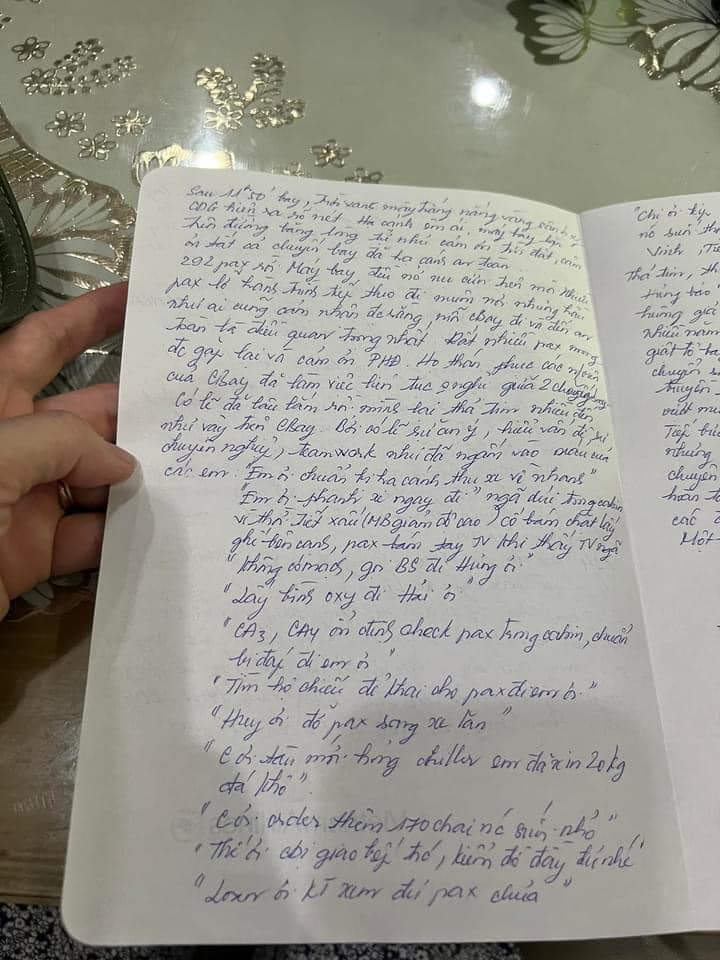 Sau 11h50' bay, trên vạnt mây trắng nắng vàng sân bay
CDG hiện ra rõ nét. Hạ cánh êm ái, máy bay lăn
trên đường băng lòng thì nhủ cảm ơn trời đất, cảm
ơn tất cả chuyến bay đã hạ cánh an toàn.
292 pax rồi. Máy bay đã nổ
pax lỡ hành trình tiếp theo đi muộn nhưng hầu
như ai cũng cảm nhận đc rằng, mỗi cbay đi và đến an
toàn là điều quan trọng nhất. Rất nhiều pax mong
đc gặp lại và cảm ơn PHĐ. Họ thán phục các
của Cbay đã làm việc liên tục 0 nghỉ giữa 2 chuyến bay
Có lẽ đã lâu lắm rồi mình lại thả tim nhiều đến
như vậy trên Cbay. Bởi có lẽ sự an ý, hiểu vấn đề, sự
chuyên nghiệp, teamwork như đã ngấm vào máu của
các em: "Em ơi chuẩn bị hạ cánh thu xe về nhanh"
"Em ơi phanh xe ngay đi" ngã dúi trong cabin
vì thời tiết xấu (MB giảm độ cao) cố bám chặt lấy
ghế bên cạnh, pax bám tay TV khi thấy TV ngã
"Không có mạch, gọi BS đi Hưng ơi"
"Lấy bình oxy đi Hải ơi"
"CA3, CA4 ổn định, check pax trong cabin, chuẩn
bị đáp đi em ơi"
"Tìm hộ chiếu để khai cho pax đi em ơi"
"Huy ơi đỡ pax sang xe lăn"
"C ơi tàu mới hỏng chiller em đã xin 20kg
đá khô".
"C ơi order thêm 170 chai nc suối nhỏ"
"Thế ơi chị giao bếp tró, kiểm đồ đầy đủ nhé"
"Loan ơi KT xem đủ pax chưa"
"Chị ơi
nó suối
Vinh,
Thả tim,
Hùng báo
hưng
Nhiều năm
giất
chuyên
truyền
việt
Tiếp
những
chuyến
hoàn
các
Một